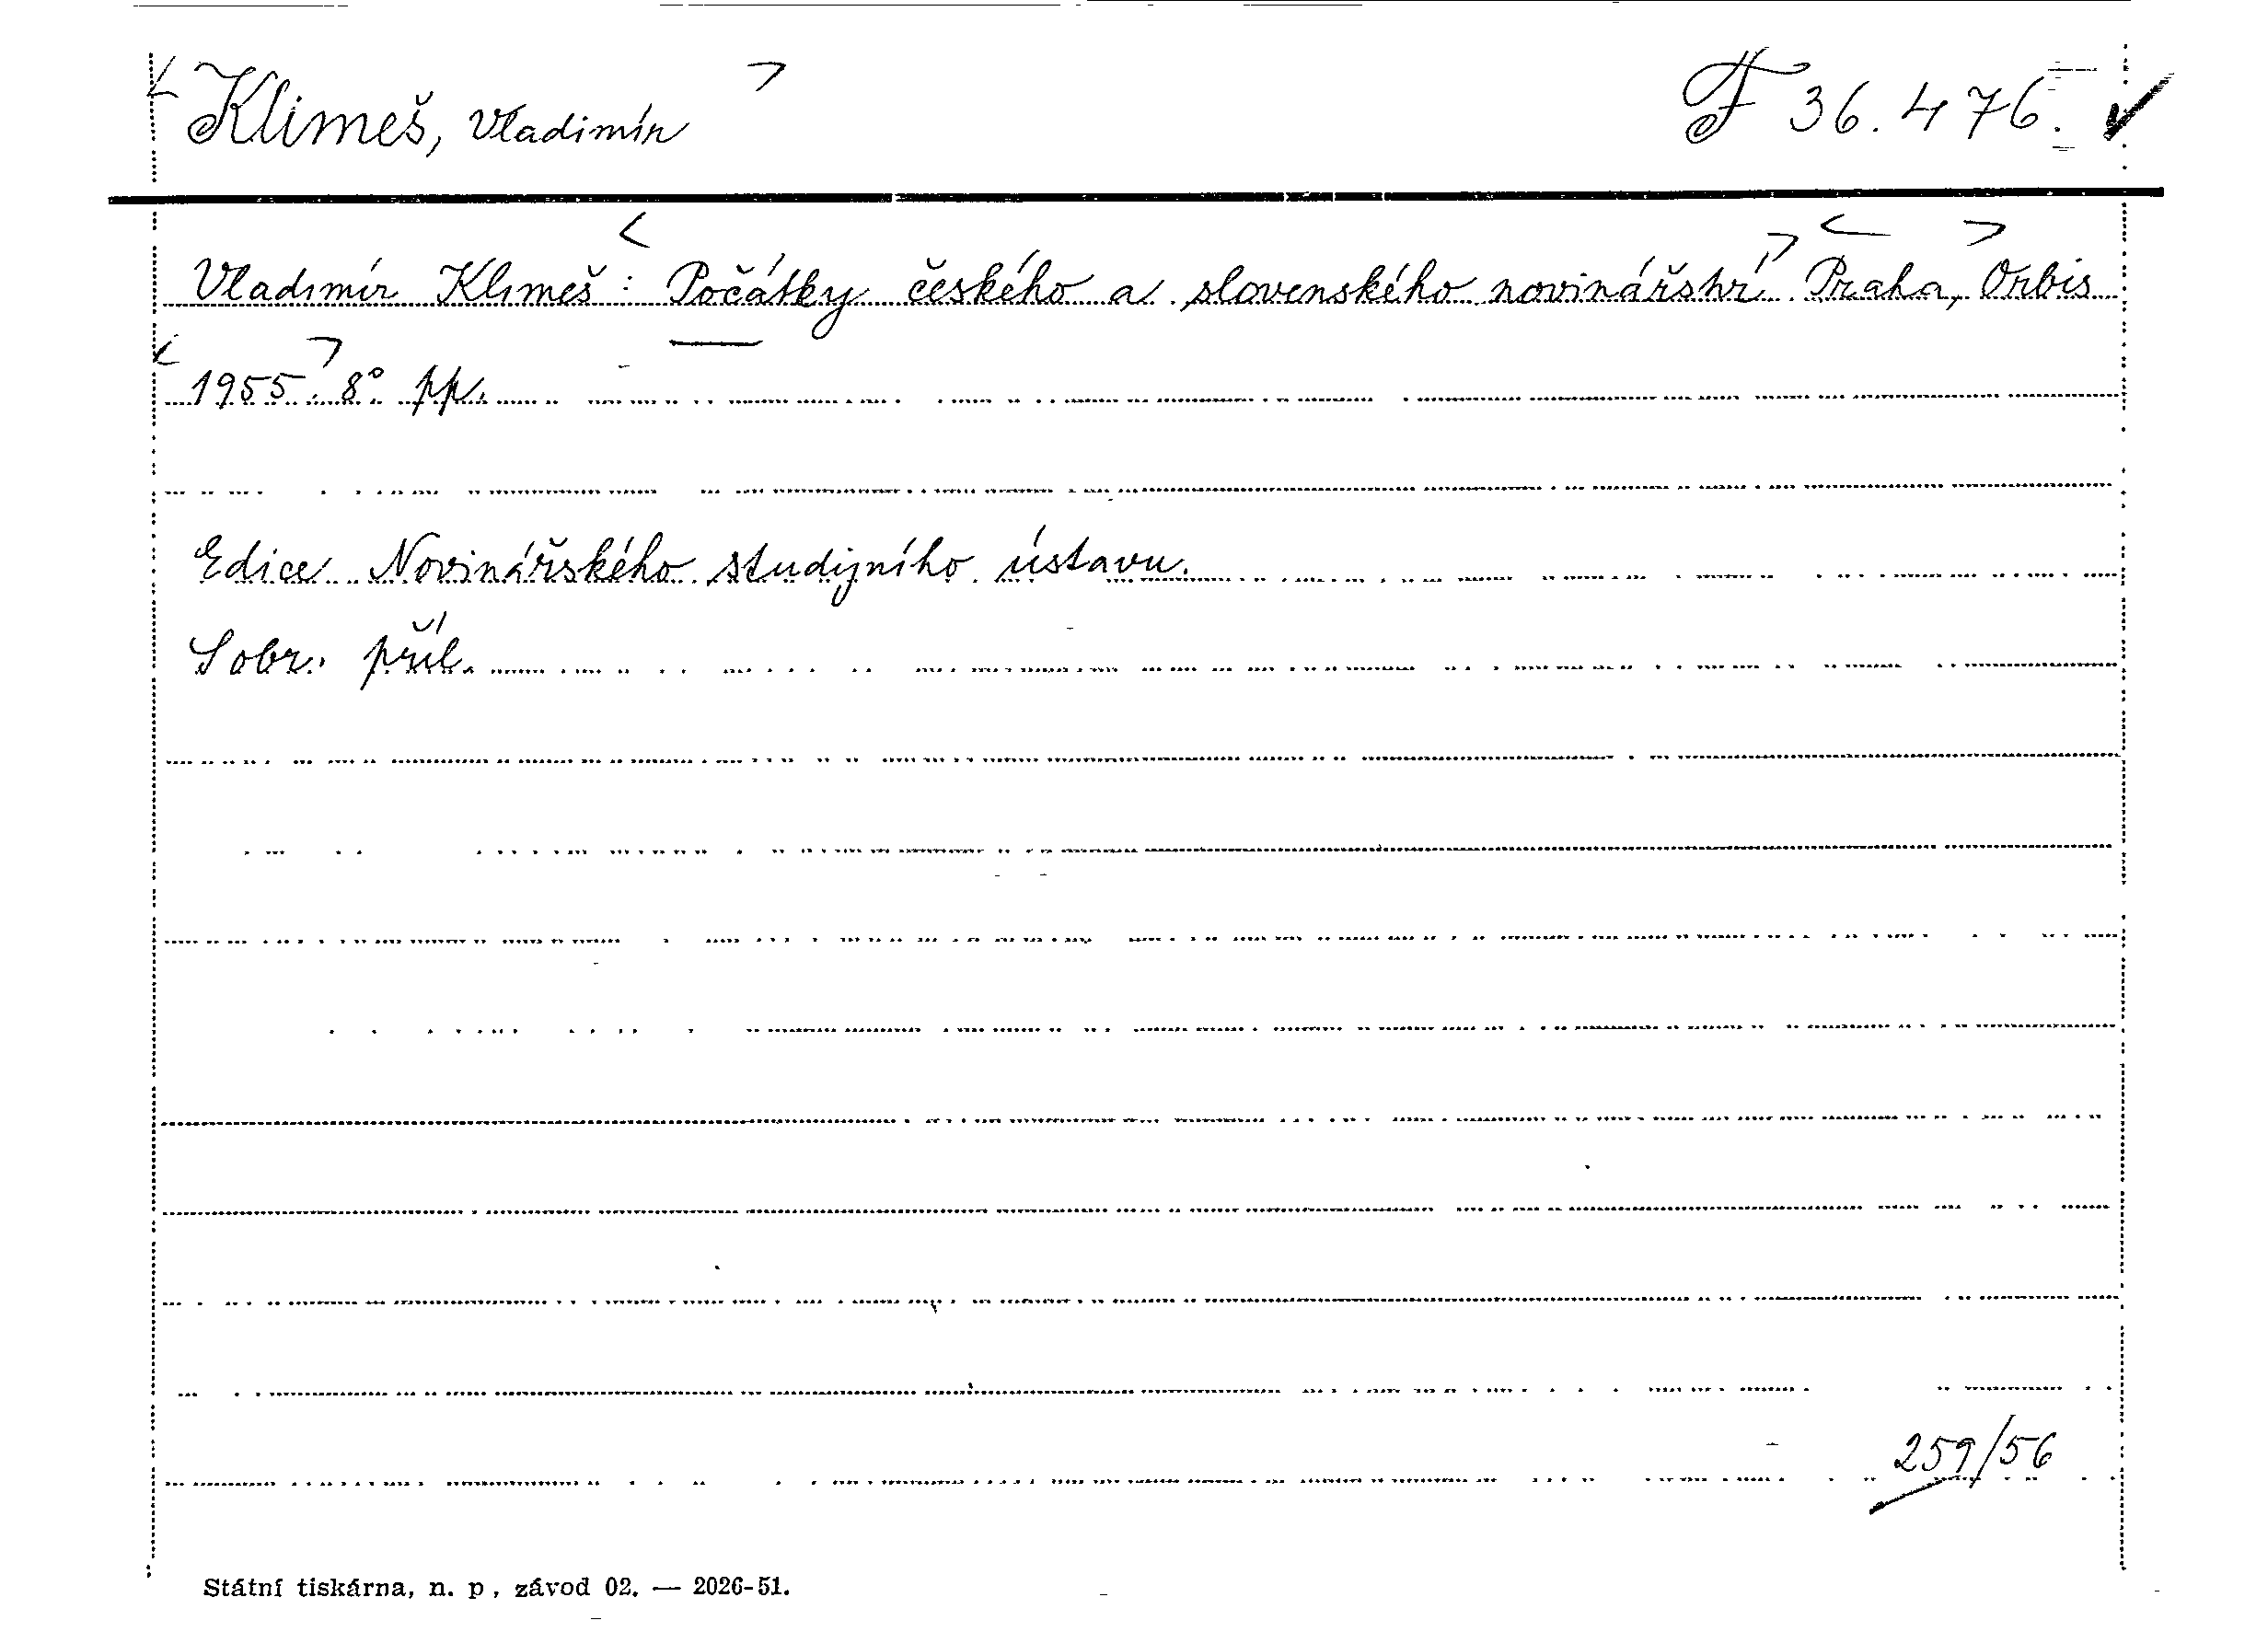 Klimeš, Vladimír
F 36.476.
Vladimír Klimeš: Počátky českého a slovenského novinářství. Praha, Orbis
1955. 8° pp.
Edice Novinářského studijního ústavu.
S obr. příl.
259/56
Státní tiskárna, n. p., závod 02. — 2026-51.